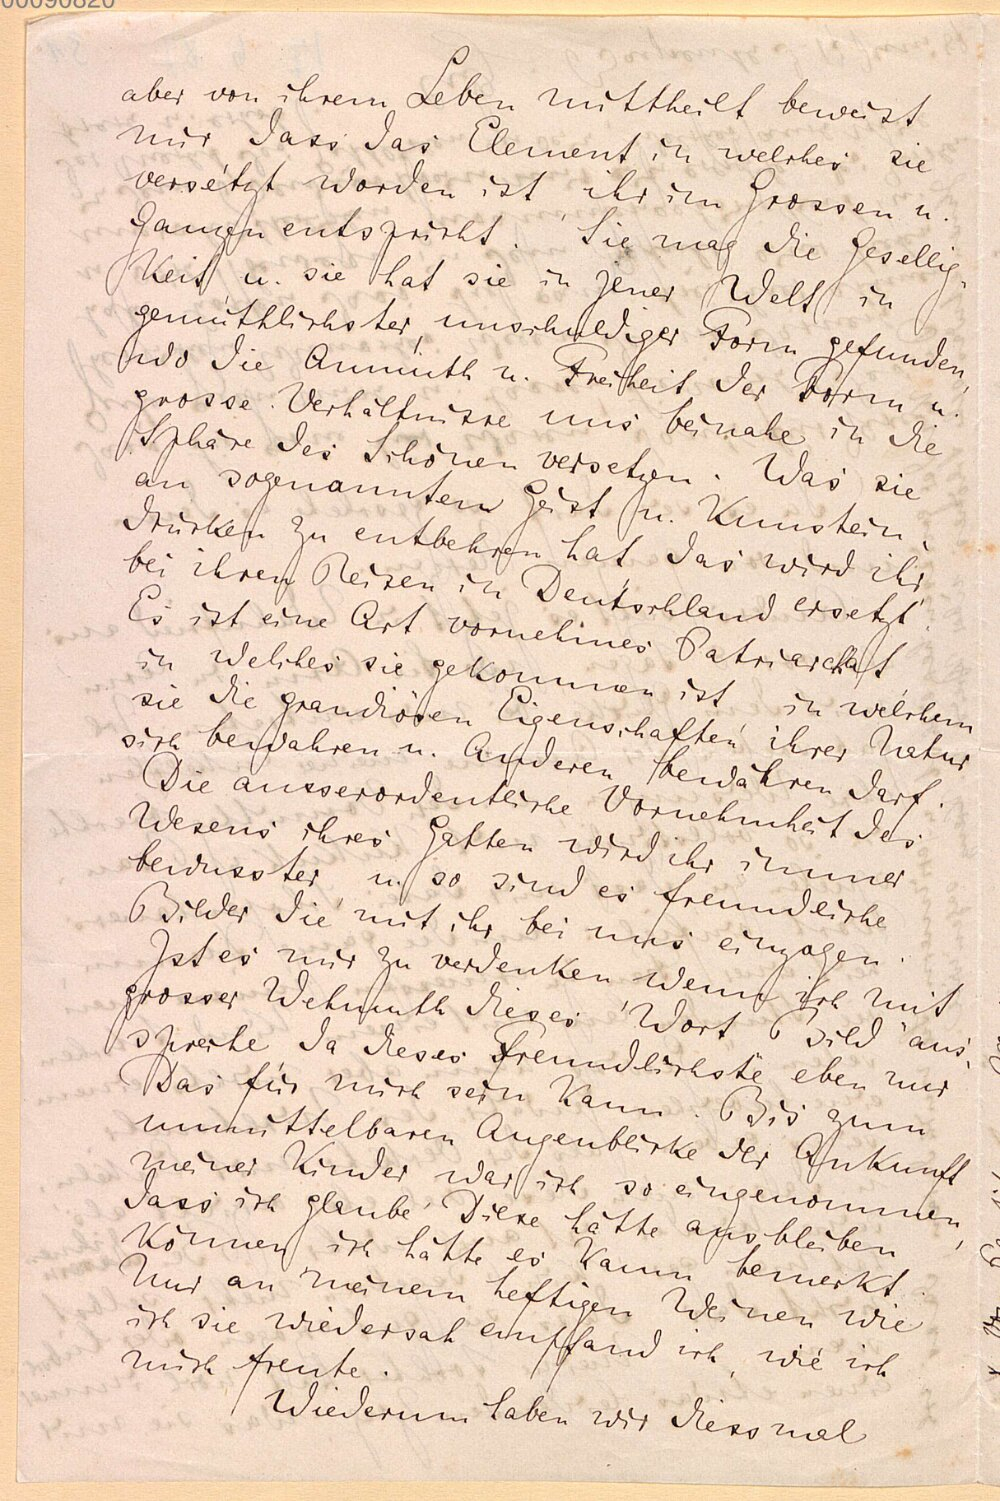 00090820
aber von ihrem Leben mittheilt beweist
mir dass das Element in welches sie
versetzt worden ist, ihr im Grossen u.
Ganzen entspricht. Sie mag die Gesellig-
keit u. sie hat sie in jener Welt in
gemüthlichster, unschuldiger Form gefunden,
wo die Anmuth u. Freiheit der Form u.
grosse Verhältnisse uns beinahe in die
Sphäre des Schönen versetzen. Was sie
an sogenanntem Geist u. Kunstein-
drücken zu entbehren hat das wird ihr
bei ihren Reisen in Deutschland ersetzt.
Es ist eine Art vornehmes Patriarchat
in welches sie gekommen ist, in welchem
sie die grandiösen Eigenschaften ihrer Natur
sich bewahren u. Anderen bewähren darf.
Die ausserordentliche Vornehmheit des
Wesens ihres Gatten wird ihr immer
bewusster, u. so sind es freundliche
Bilder die mit ihr bei uns einzogen.
Ist es mir zu verdenken wenn ich mit
grosser Wehmuth dieses Wort "Bild" aus-
spreche da dieses Freundlichste eben nur
Das für mich sein kann. Bis zum
unmittelbaren Augenblicke der Ankunft
meiner Kinder war ich so eingenommen,
dass ich glaube Diese hätte ausbleiben
können, ich hätte es kaum bemerkt.
Nur an meinem heftigen Weinen wie
ich sie wiedersah empfand ich, wie ich
mich freute.
Wiederum haben wir diessmal